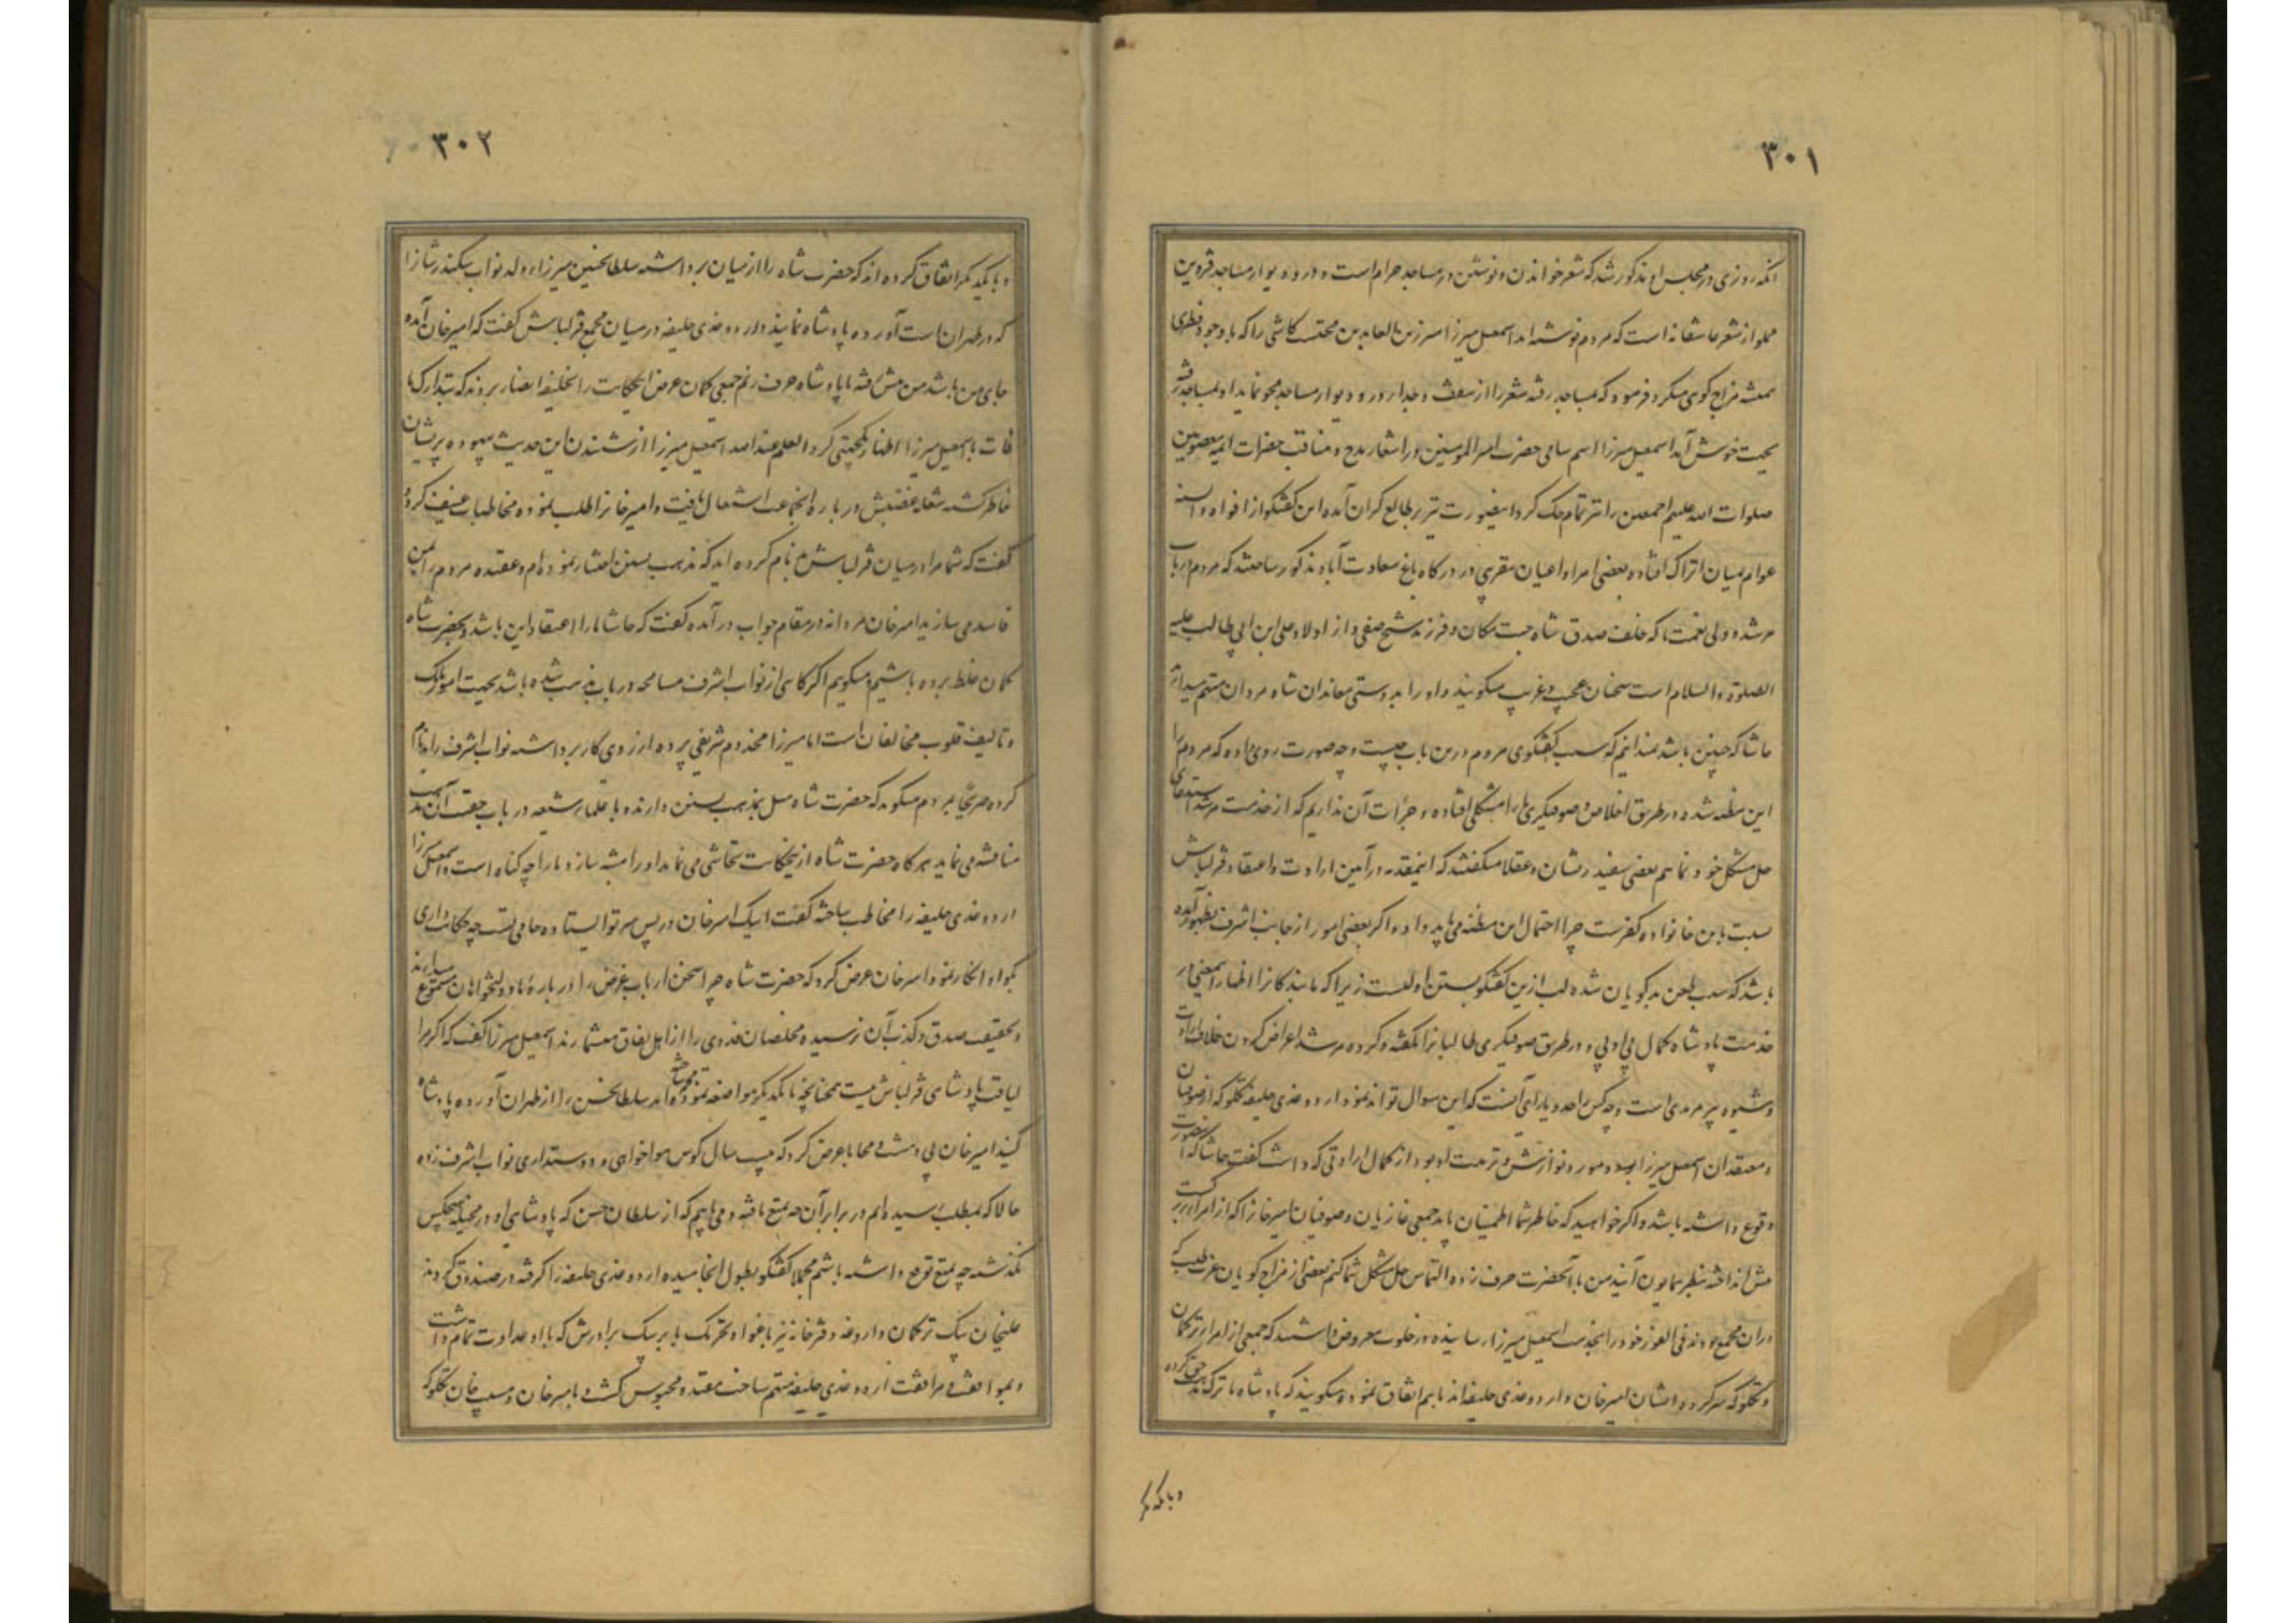 ۳۰۱
آنکه روزی در مجلس او مذکور شد که شعر خواندن و نوشتن در مساجد حرام است و در دیوار مساجد قزوین
مملو از شعر عاشقانه است که مردم نوشته‌اند اسمعیل میرزا میرزین العابدین محتسب کاشی را که با وجود فطری
همیشه مزاج کوی میکرد فرمود که بمساجد رفته شعر را از سقف و جدار و در و دیوار مساجد محو نماید او بمساجد رفته
بجهت خوش آمد اسمعیل میرزا اسم سامی حضرت امیر المومنین و اشعار مدح و مناقب حضرات ائمه معصومین
صلوات الله علیهم اجمعین را نیز تمام حک کرد اینصورت نیز بر طبایع کران آمده این کفتکو از افواه و السنه
عوام بمیان اتراک افتاده بعضی امرا و اعیان مقرری در درکاه باغ سعادت آباد مذکور ساختند که مردم در باب
مرشد و ولی نعمت ما که خلف صدق شاه جنت مکان و فرزند شیخ صفی و از اولاد علی ابن ابی طالب علیه
الصلوة والسلام است سخنان عجیب و غریب میکویند و او را بدوستی معاندان شاه مردان متهم میدارند
حاشا که چنین باشد نمیدانیم که سبب کفتکوی مردم درین باب چیست و چه صورت روی داده که مردم را
این مظنه شده در طریق اخلاص و صوفیکری ما را مشکلی افتاده و جرأت آن نداریم که از خدمت مرشد استدعای
حل مشکل خود نماییم بعضی سفید ریشان و عقلا میکفتند که اینمقدمه در آیین ارادت و اعتقاد قزلباش
نسبت باین خانواده کفرست چرا احتمال این مظنه می‌باید داد و اکر بعضی امور از جانب اشرف بظهور آمده
باشد که سبب طعن بدکویان شده لب ازین کفتکو بستن اولیست زیرا که ما بندکانرا اظهار اینمعنی در
خدمت پادشاه کمال بی ادبی و در طریق صوفیکری طالبانرا بکفته و کرده مرشد اعراض کردن خلاف ارادت
و شیوه پیر مریدی است و چه کس را حد و یارای آنست که این سوال تواند نمود اردوغدی خلیفه تکلو که از صوفیان
و معتقدان اسمعیل میرزا بوده و مورد نوازش و تربیت او بود از کمال ارادتی که داشت کفت حاشا که اینصورت
وقوع داشته باشد و اکر خواهید که خاطر شما اطمینان یابد جمعی غازیان و صوفیان امیرخانرا که از امرای بزرکست
پیش انداخته بنظر همایون آیند من با آنحضرت حرف زده التماس حل مشکل شما کنم بعضی از مزاج کویان عزت طلب که
در آن مجمع بودند فی الفور خود را بخدمت اسمعیل میرزا رسانیده در خلوت معروض داشتند که جمعی از امرای ترکمان
و تکلو که سرکرده ایشان امیرخان و اردوغدی خلیفه‌اند با هم اتفاق نموده میکویند که پادشاه ما ترک مذهب حق کرده
و با یکدیکر
۳۰۲
و با یکدیکر اتفاق کرده‌اند که حضرت شاه را از میان برداشته سلطانحسین میرزا ولد نواب سکندر شانرا
که در طهران است آورده پادشاه نمایند و اردوغدی خلیفه در میان مجمع قزلباش کفت که امیرخان آمده
جای من باشد من پیش رفته با پادشاه حرف زنم جمعی کمان عرض اینحکایت را بخلیفه انصار بردند که بتدارک ما
فات با اسمعیل میرزا اظهار یکجهتی کرد العلم عند الله اسمعیل میرزا از شنیدن این حدیث بیهوده پریشان
خاطر کشته شعله غضبش در باره آنجماعت اشتعال یافت و امیرخانرا طلب نموده مخاطبات عنیف کرد و
کفت که شما مرا در میان قزلباش بد نام کرده‌اید که مذهب تسنن اختیار نموده‌ام و عقیده مردم را بمن
فاسد می‌سازید امیرخان مردانه در مقام جواب در آمده کفت که حاشا ما را اعتقاد این باشد و بحضرت شاه
کمان غلط برده باشیم و میکوییم اکر کاهی از نواب اشرف مسامحه در باب مذهب شده باشد بجهت امور ملک
و تالیف قلوب مخالفان است اما میرزا مخدوم شریفی پرده از روی کار برداشته نواب اشرف را بدنام
کرده صریحاً بمردم میکوید که حضرت شاه میل بمذهب تسنن دارند و با علمای شیعه در باب حقیت آن مذهب
مناقشه می‌نماید هرکاه حضرت شاه ازینحکایت تحاشی می‌نماید او را تنبیه سازد ما را چه کناه است و اسمعیل میرزا
اردوغدی خلیفه را مخاطب ساخته کفت اینک امیرخان در پس سر تو ایستاده جامی تست چه حکایت داری
بکو او انکار نمود امیرخان عرض کرد که حضرت شاه چرا سخن ارباب غرض را در باره ما دولتخواهان مسموع میدارند
و بتحقیق صدق و کذب آن نرسیده مخلصان فدوی را از اهل نفاق میشمارند اسمعیل میرزا کفت که اکر مرا
لیاقت پادشاهی قزلباش نیست همچنانچه با یکدیکر مواضعه نموده‌اند سلطانحسن را از طهران آورده پادشاه
کنید امیرخان بی دهشت و محابا عرض کرد که بیست سال کوس هواخواهی و دوستداری نواب اشرف زده
حالا که بمطلب رسیده‌ایم در برابر آن چه تمتع یافته و می‌یابیم که از سلطان حسن که پادشاهی او در مخیله هیچکس
نکذشته چه تمتع توقع داشته باشیم مجملا کفتکو بطول انجامیده اردوغدی خلیفه را کرفته در صندوق کردند
علیخان بیک ترکمان داروغه دفترخانه نیز باغوا و تحریک بابر بیک برادرش که با او عداوت تمام داشت
و بموافقت و مرافقت اردوغدی خلیفه متهم ساخت مقید و محبوس کشت و با میرخان و مسیب خان تکلو که